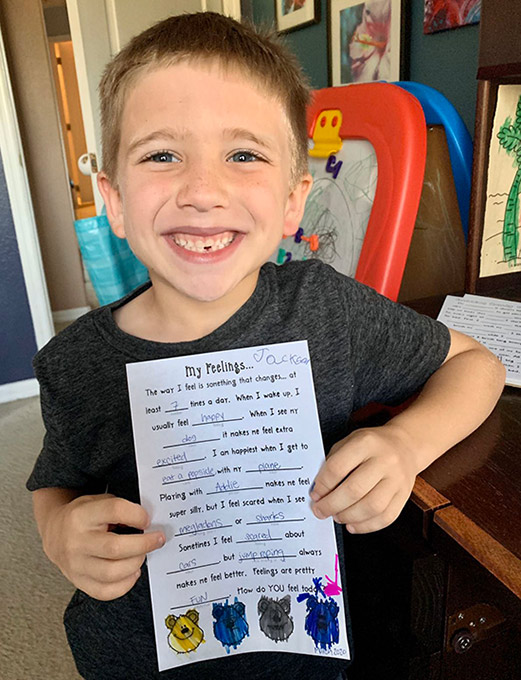 My Feelings... Jackson
The way I feel is something that changes... at
least 7 times a day. When I wake up, I
usually feel happy. When I see my
dog it makes me feel extra
excited. I am happiest when I get to
eat a popsicle with my plane.
Playing with Addie makes me feel
super silly, but I feel scared when I see
megladons or sharks.
Sometimes I feel scared about
cars, but jumproping always
makes me feel better. Feelings are pretty
FUN. How do YOU feel today?
March 2020